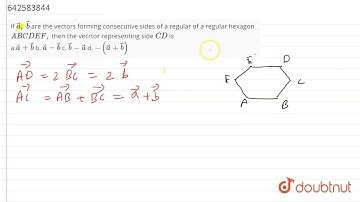 642583844
If a⃗, b⃗ are the vectors forming consecutive sides of a regular of a regular hexagon
ABCDEF, then the vecrtor representing side CD is
a.a⃗ + b⃗ b. a⃗ − b⃗ c. b⃗ − a⃗ d. − (a⃗ + b⃗)
AD⃗ = 2 BC⃗ = 2 b⃗
AC⃗ = AB⃗ + BC⃗ = a⃗ + b⃗
E D
F C
A B
doubtnut